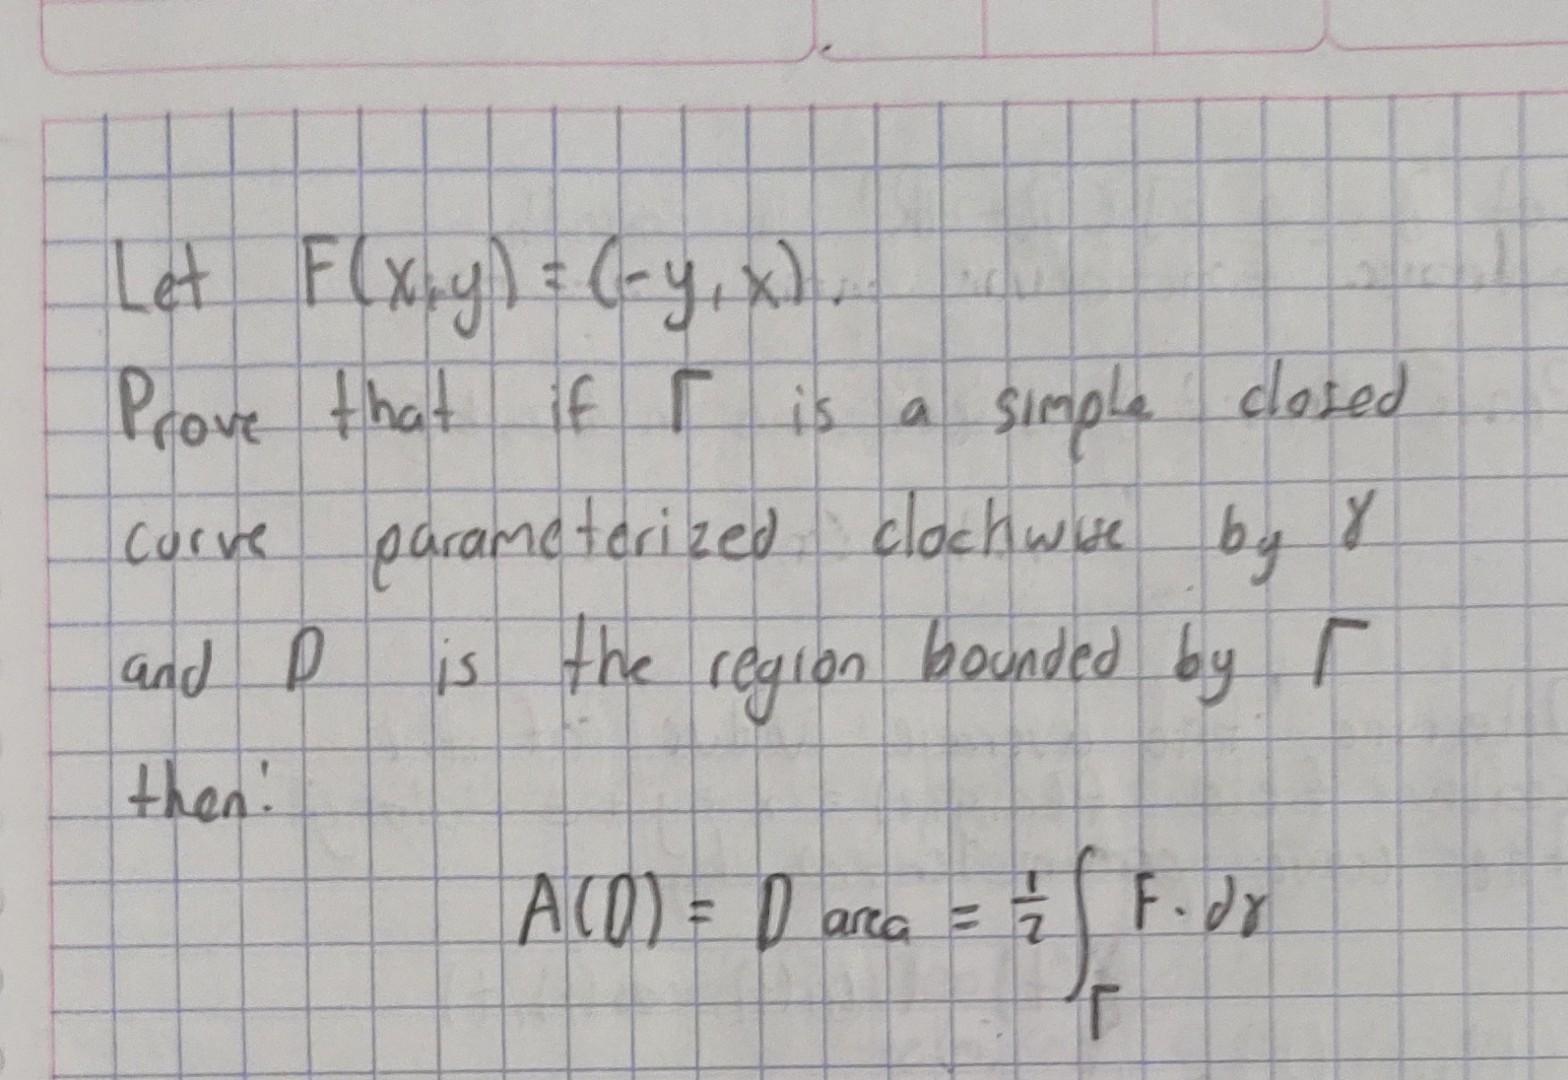 Let F(x,y) = (-y, x).
Prove that if Γ is a simple closed
curve parameterized clockwise by γ
and D is the region bounded by Γ
then:
A(D) = D area = 1/2 ∫_Γ F · dγ